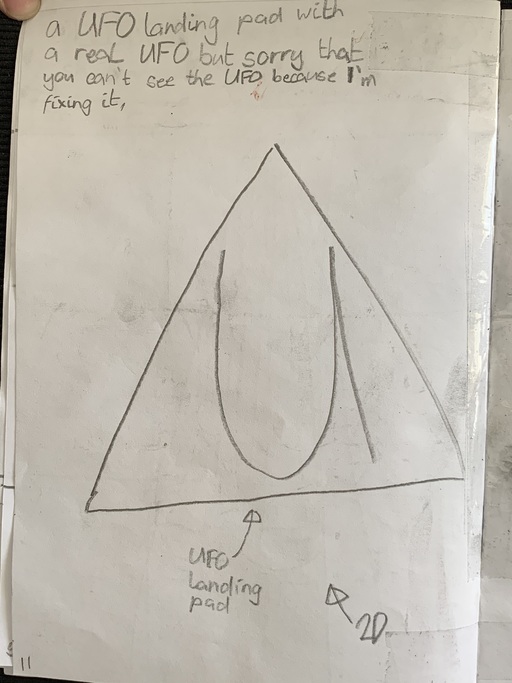 a UFO landing pad with
a real UFO but sorry that
you can't see the UFO because I'm
fixing it,
U
UFO
landing
pad
2D
11